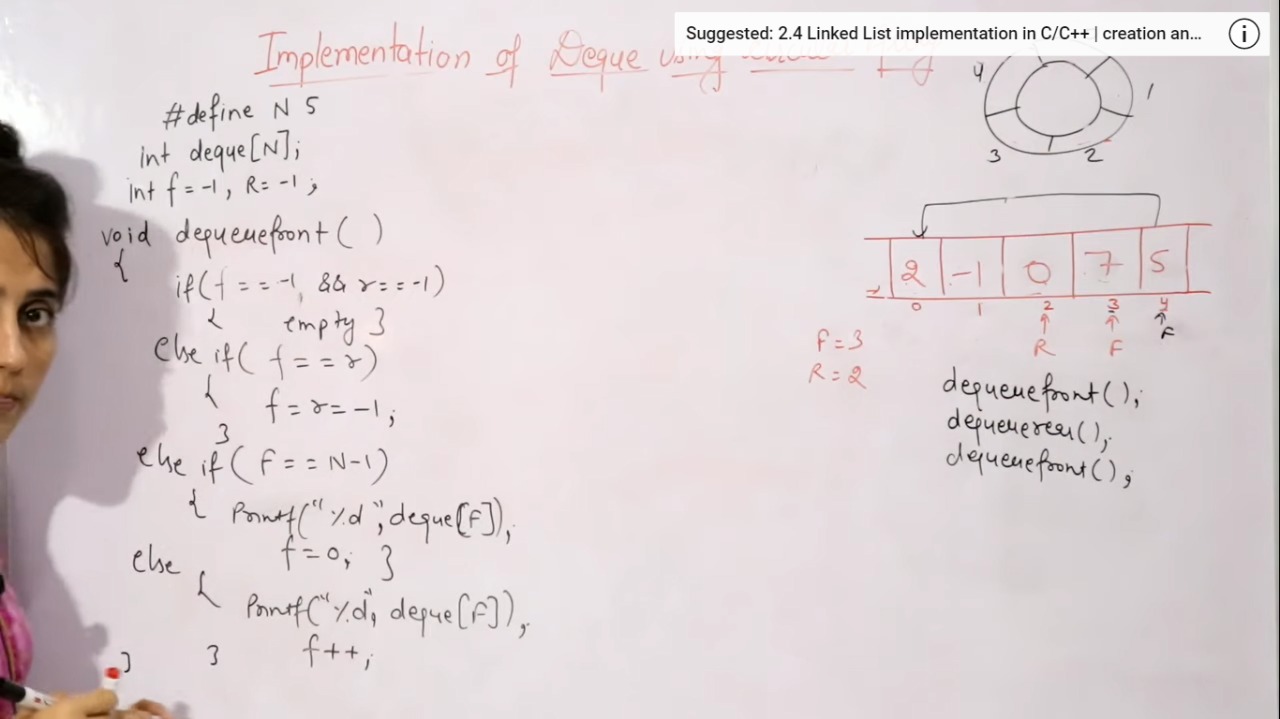 Suggested: 2.4 Linked List implementation in C/C++ | creation an...
Implementation of Deque using
#define N 5
int deque[N];
int f = -1, R = -1;
void dequeuefront ( )
{
if(f == -1 && r == -1)
{ empty }
else if( f == r)
{
f = r = -1;
}
else if( F == N-1)
{ Printf("%d", deque[F]);
f = 0; }
else
{
Printf("%d", deque[F]);
} } f++;
4 1
3 2
2 -1 0 7 5
0 1 2 3 4
R F F
F = 3
R = 2
dequeuefront();
dequeuerear();
dequeuefront();